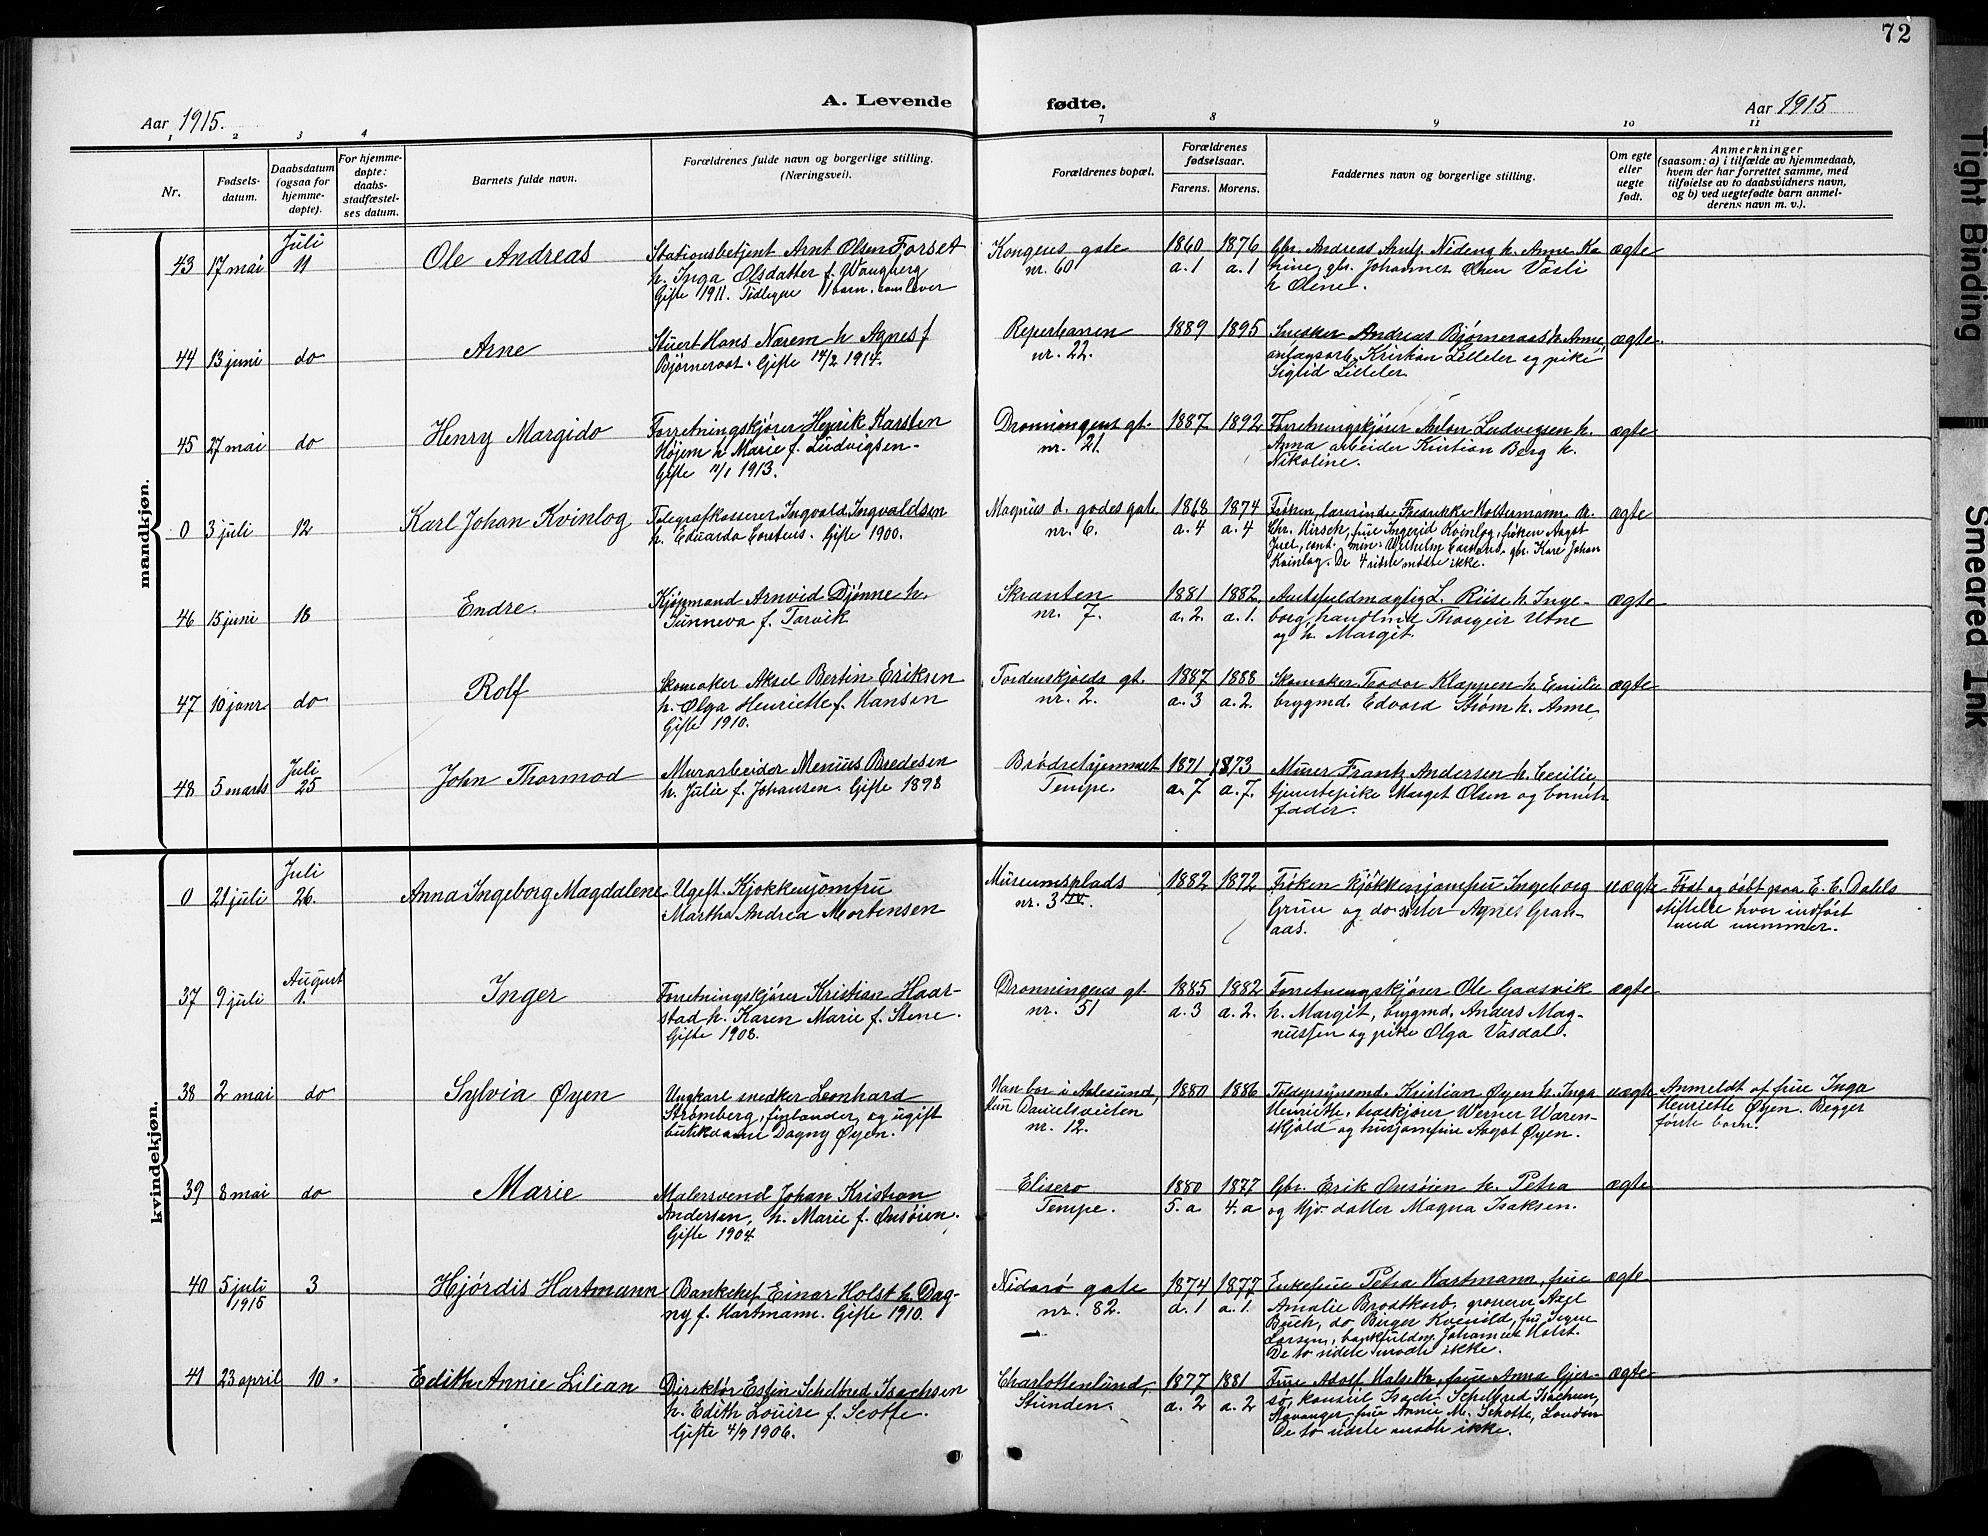 72
A. Levende fødte.
Aar 1915.
Aar 1915
1 2 3 4 7 8 9 10 11
Nr.
Fødsels-
datum.
Daabsdatum
(ogsaa for
hjemme-
døpte).
For hjemme-
døpte:
daabs-
stadfæstel-
ses datum.
Barnets fulde navn.
Forældrenes fulde navn og borgerlige stilling.
(Næringsvei).
Forældrenes bopæl.
Forældrenes
fødselsaar.
Farens. Morens.
Faddernes navn og borgerlige stilling.
Om egte
eller
uegte
født.
Anmerkninger
(saasom: a) i tilfælde av hjemmedaab,
hvem der har forrettet samme, med
tilføielse av to daabsvidners navn,
og b) ved uegtefødte barn anmel-
derens navn m. v.).
mandkjøn.
43 17 mai Juli 11
Ole Andreas
Stationsbetjent Arnt Olsen Forset
h. Inga Olsdatter f. Waugberg
Gifte 1911. Tidligere 1 barn, som lever
Kongens gate
nr. 60
1860 a. 1
1876 a. 1
Gbr. Andreas Arntz. Nideng h. Anne Ka
trine, gbr. Johannes Olsen Vasli
h Oline.
ægte
44 13 juni do
Arne
Stuert Hans Nærem h Agnes f
Bjørneraat. Gifte 14/2 1914.
Reperbanen
nr. 22.
1889 1895
Snedker Andreas Bjørneraas h. Anne,
anlægsarb. Kristian Lilleler og pike
Sigrid Lilleler
ægte.
45 27 mai do
Henry Margido
Forretningskjører Henrik Karsten
Højem h Marie f. Ludvigsen.
Gifte 11/1 1913.
Dronningens gt.
nr. 21.
1887 1892
Forretningskjører Anton Ludvigsen h.
Anna arbeider Kristian Berg h.
Nikoline.
ægte
0 3 juli 12
Karl Johan Kvinlog
Telegrafkasserer Ingvald Ingvaldsen
h. Eduarda Corstens. Gifte 1900.
Magnus d. godes gate
nr. 6.
1868 a. 4
1874 a. 4
Frøken, lærerinde Fredrikke Holtermann h.
Chr. Hirsch, frue Ingerid Kvinlog, frøken Aagot
Juel, cand. min. Vilhelm Corstens, gbr. Kare Johan
Kvinlog. De 4 sidste mødte ikke.
ægte
46 15 juni 18
Endre.
Kjøpmand Arnvid Djønne h.
Sunneva f. Torvik
Skranten
nr. 7.
1881 a. 2.
1882 a. 1.
Amtsfuldmægtig L. Riise h. Inge-
borg, handlende Thorgeir Utne
og h. Margit.
ægte
47 10 janr do
Rolf
Skomaker Aksel Bertin Eriksen
h. Olga Henriette f. Hansen
Gifte 1910.
Tordenskjolds gt.
nr. 2.
1887 a. 3
1888 a. 2.
Skomaker Teodor Klappen h. Emilie
brygmd. Edvard Strøm h. Anne
ægte
48 5 marts Juli 25
John Thormod
Murarbeider Menius Bredesen
h. Julie f. Johansen. Gifte 1898
Brødrehjemmet
Tempe.
1871 a. 7
1873 a. 7.
Murer Frantz Andersen h. Cecilie,
tjenestepike Marget Olsen og barnets
fader.
kvindekjøn.
0 21 juli Juli 26.
Anna Ingeborg Magdalene
Ugift. Kjøkkenjomfru
Martha Andrea Mortensen
Museumsplads
nr. 3 IV.
1882 1872
Frøken kjøkkenjomfru Ingeborg
Gruu og do søster Agnes Gran-
aas.
uægte
Født og døbt paa E. C. Dahls
stiftelse hvor indført
med nummer.
37 9 juli August 1.
Inger
Forretningskjører Kristian Haar-
stad h. Karen Marie f. Stene.
Gifte 1908.
Dronningens gt.
nr. 51
1885 a. 3
1882 a. 2.
Forretningskjører Ole Gaasvik
h. Margit, brygmd. Anders Mag-
nussen og pike Olga Vasdal.
ægte
38 2 mai do
Sylvia Øyen
Ungkarl snedker Leonhard
Strømberg, finlænder og ugift
butikdame Dagny Øyen.
Han bor i Aalesund,
Hun Danielsveiten
nr. 12.
1880 1886
Toldopsynsmd. Kristian Øyen h. Inga
Henriette, traskjører Werner Waren-
skjold og husjomfrue Aagot Øyen.
uægte
Anmeldt af frue Inga
Henriette Øyen. Begges
første barn.
39 8 mai do
Marie
Malersvend Johan Kristian
Andersen, h. Marie f. Onsøien.
Gifte 1904.
Elisero
Tempe.
1880 5. a
1877 4. a
Gbr. Erik Onsøien h. Petra
og Hjv. datter Magna Isaksen.
ægte
40 5 juli 1915 3
Hjørdis Hartmann
Bankchef Einar Holst h. Dag-
ny f. Hartmann. Gifte 1910.
Nidarø gate
nr. 82.
1874 a. 1
1877 a. 1.
Enkefrue Petra Hartmann, frue
Amalie Brodtkorb, grosserer Axel
Buch, do Birger Kvenild, fru Signe
Larsen, bankfuldm. Johannes Holst.
De to sidste mødte ikke.
ægte
41 23 april 10.
Edith Annie Lilian
Direktør Esten Schelbred Isachsen
h. Edith Louise f. Scotte.
Gifte 4/9 1906.
Charlottenlund,
Strinden.
1877 a. 2
1881 a. 2
Frue Adolf Halseth, frue Anna Gjer-
sø, konsul Isach Schelbred Isachsen,
Stavanger, frue Annie M. Schotte, London
De to sidste mødte ikke.
ægte
Tight Binding
Smeared Ink